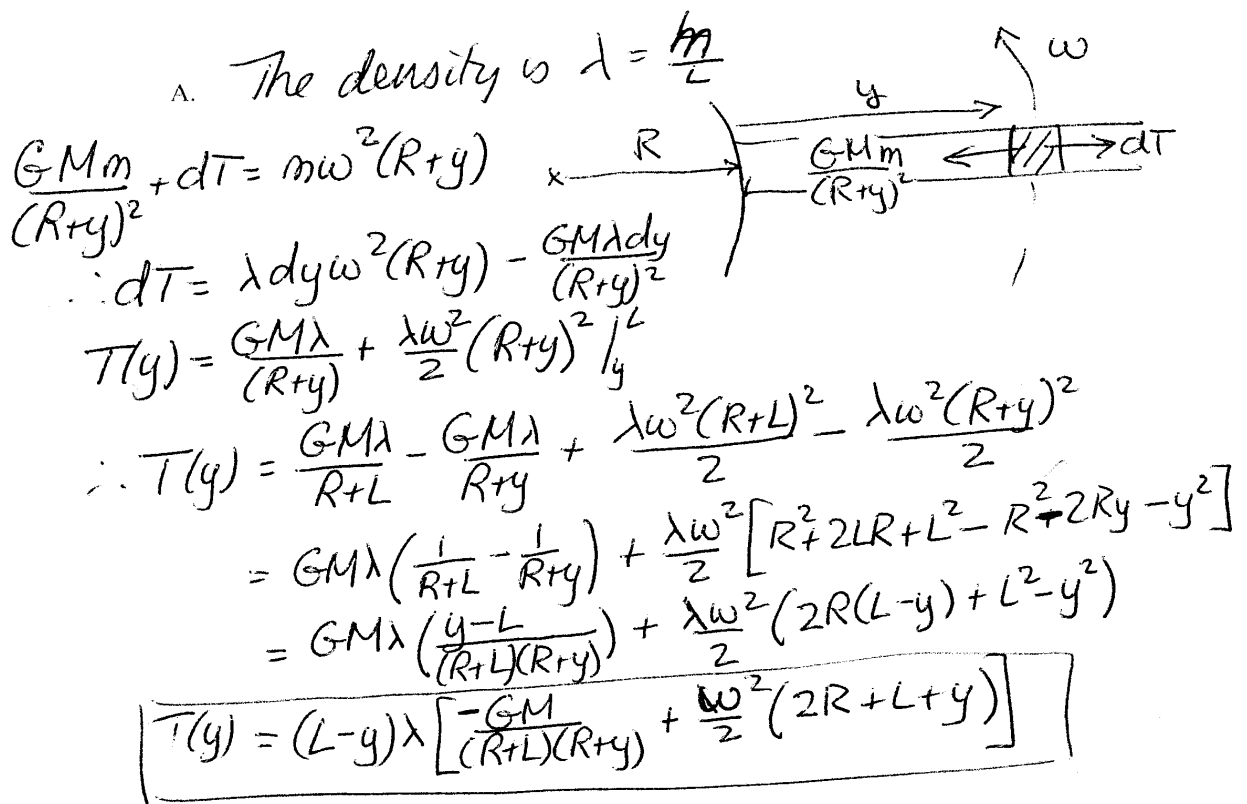 A. The density is λ = m/L
ω
y
GMm/(R+y)² + dT = mω²(R+y)
R
GMm/(R+y)²
dT
∴ dT = λdyω²(R+y) - GMλdy/(R+y)²
T(y) = GMλ/(R+y) + λω²/2 (R+y)² |_y^L
∴ T(y) = GMλ/R+L - GMλ/R+y + λω²(R+L)²/2 - λω²(R+y)²/2
= GMλ(1/R+L - 1/R+y) + λω²/2 [R²+2LR+L²-R²-2Ry-y²]
= GMλ(y-L/(R+L)(R+y)) + λω²/2 (2R(L-y)+L²-y²)
T(y) = (L-y)λ[-GM/(R+L)(R+y) + ω²/2 (2R+L+y)]